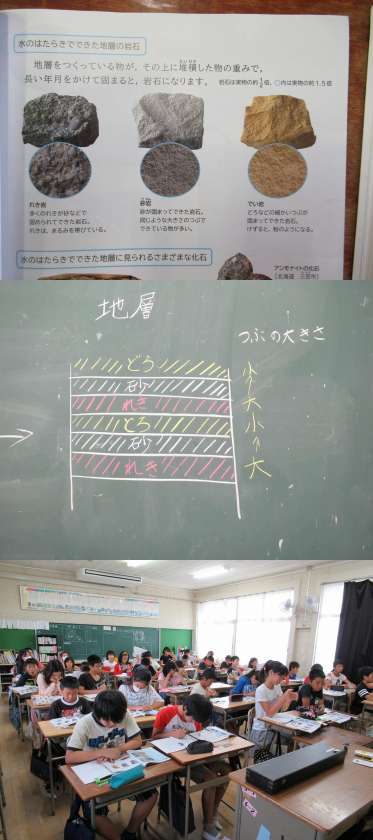 水のはたらきでできた地層の岩石
地層をつくっている物が、その上に堆積した物の重みで、
長い年月をかけて固まると、岩石になります。
れき岩
多くのれきが砂などで
固められてできた岩石。
れきは、まるみを帯びている。
砂岩
砂が固まってできた岩石。
同じような大きさのつぶで
できている物が多い。
でい岩
どろなどの細かいつぶが
固まってできた岩石。
けずると、粉のようになる。
水のはたらきでできた地層に見られるさまざまな化石
アンモナイトの化石
地層
つぶの大きさ
どろ
砂
れき
どろ
砂
れき
小
大
小
大